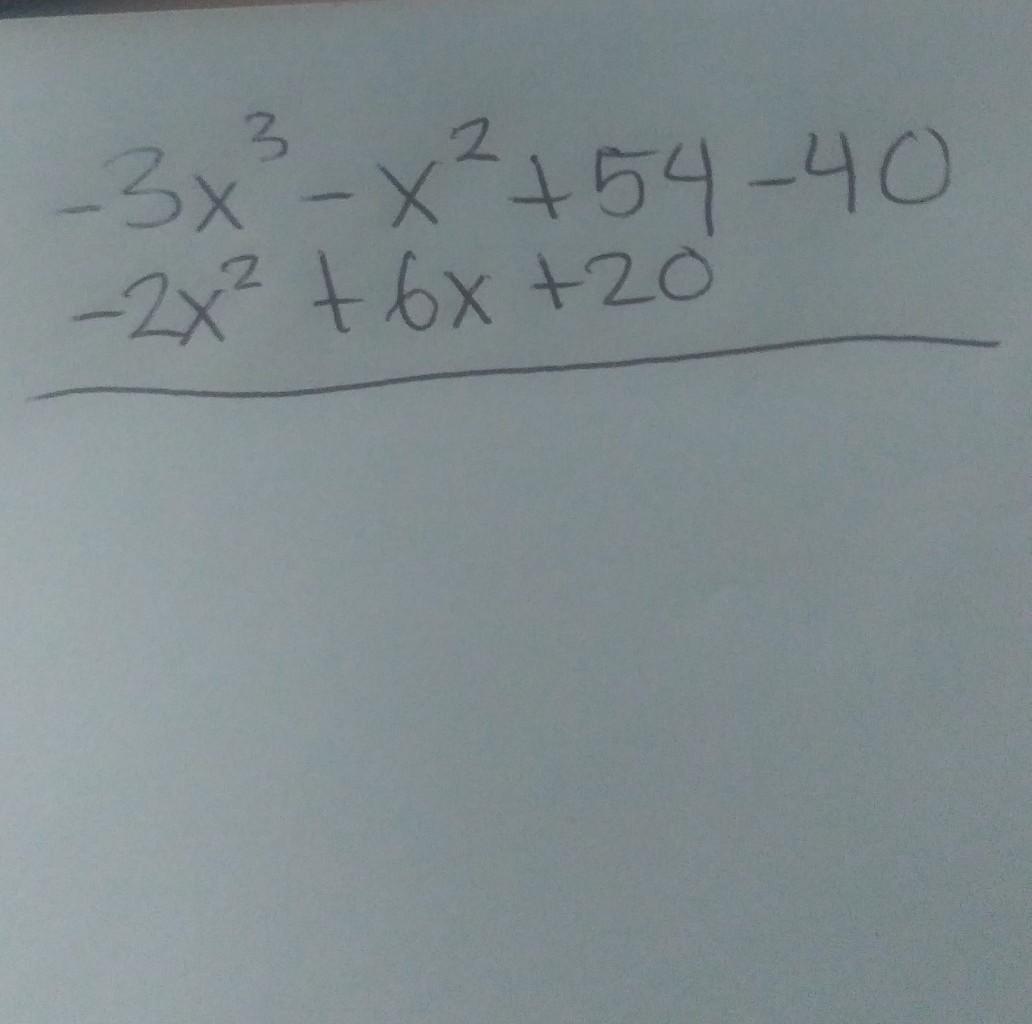 -3x³ - x² + 54 - 40
-2x² + 6x + 20